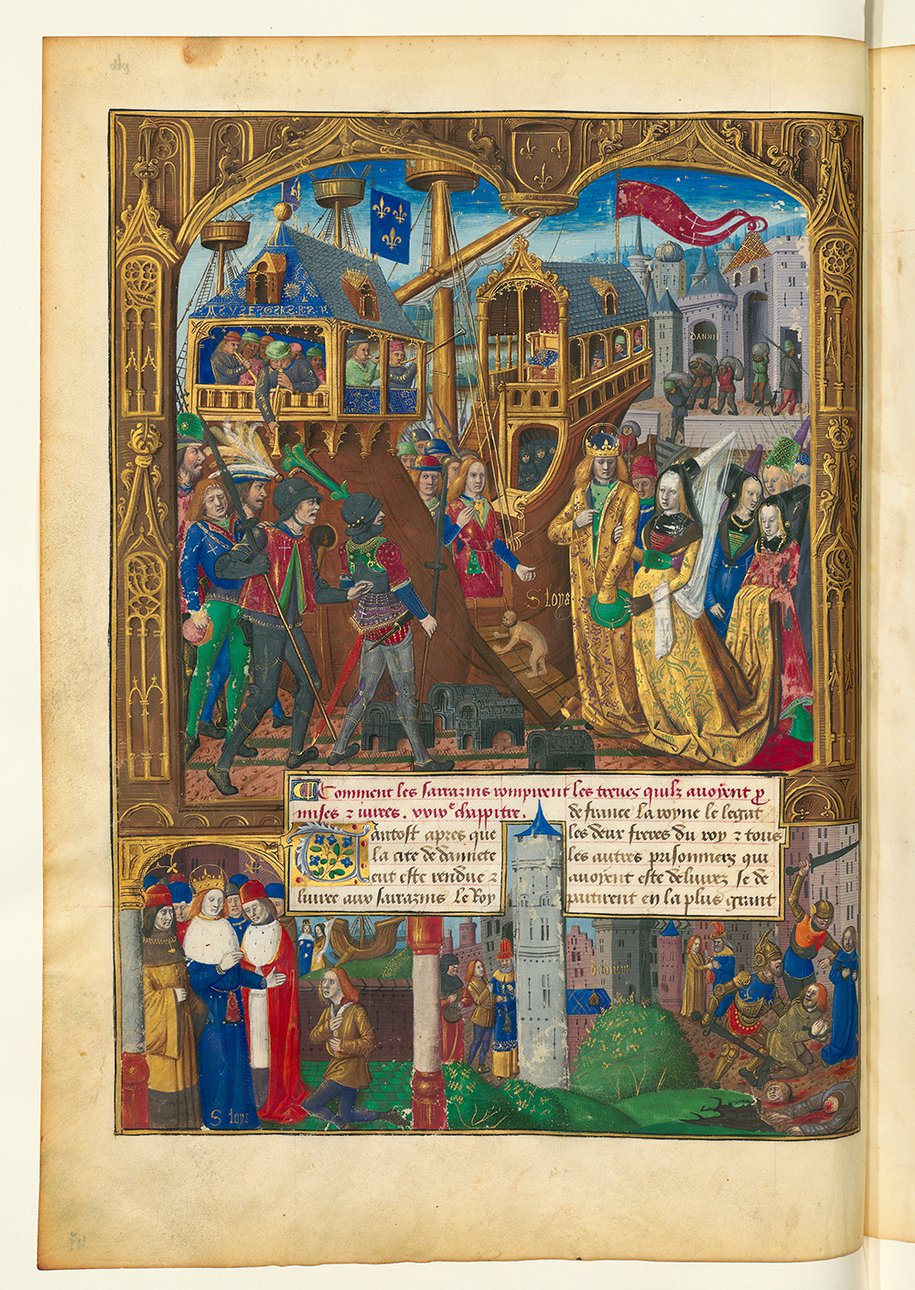 DANNIE
S loys
Comment les sarrazins rompirent les treves quilz avoient p
mises & iurees . chappitre.
Tantost apres que
la cite de damiete
eut este rendue &
livree aux sarrazins Le Roy
de france la royne le legat
les deux freres du roy & tous
les autres prisonniers qui
avoient este delivrez se de
partirent en la plus grant
S loys